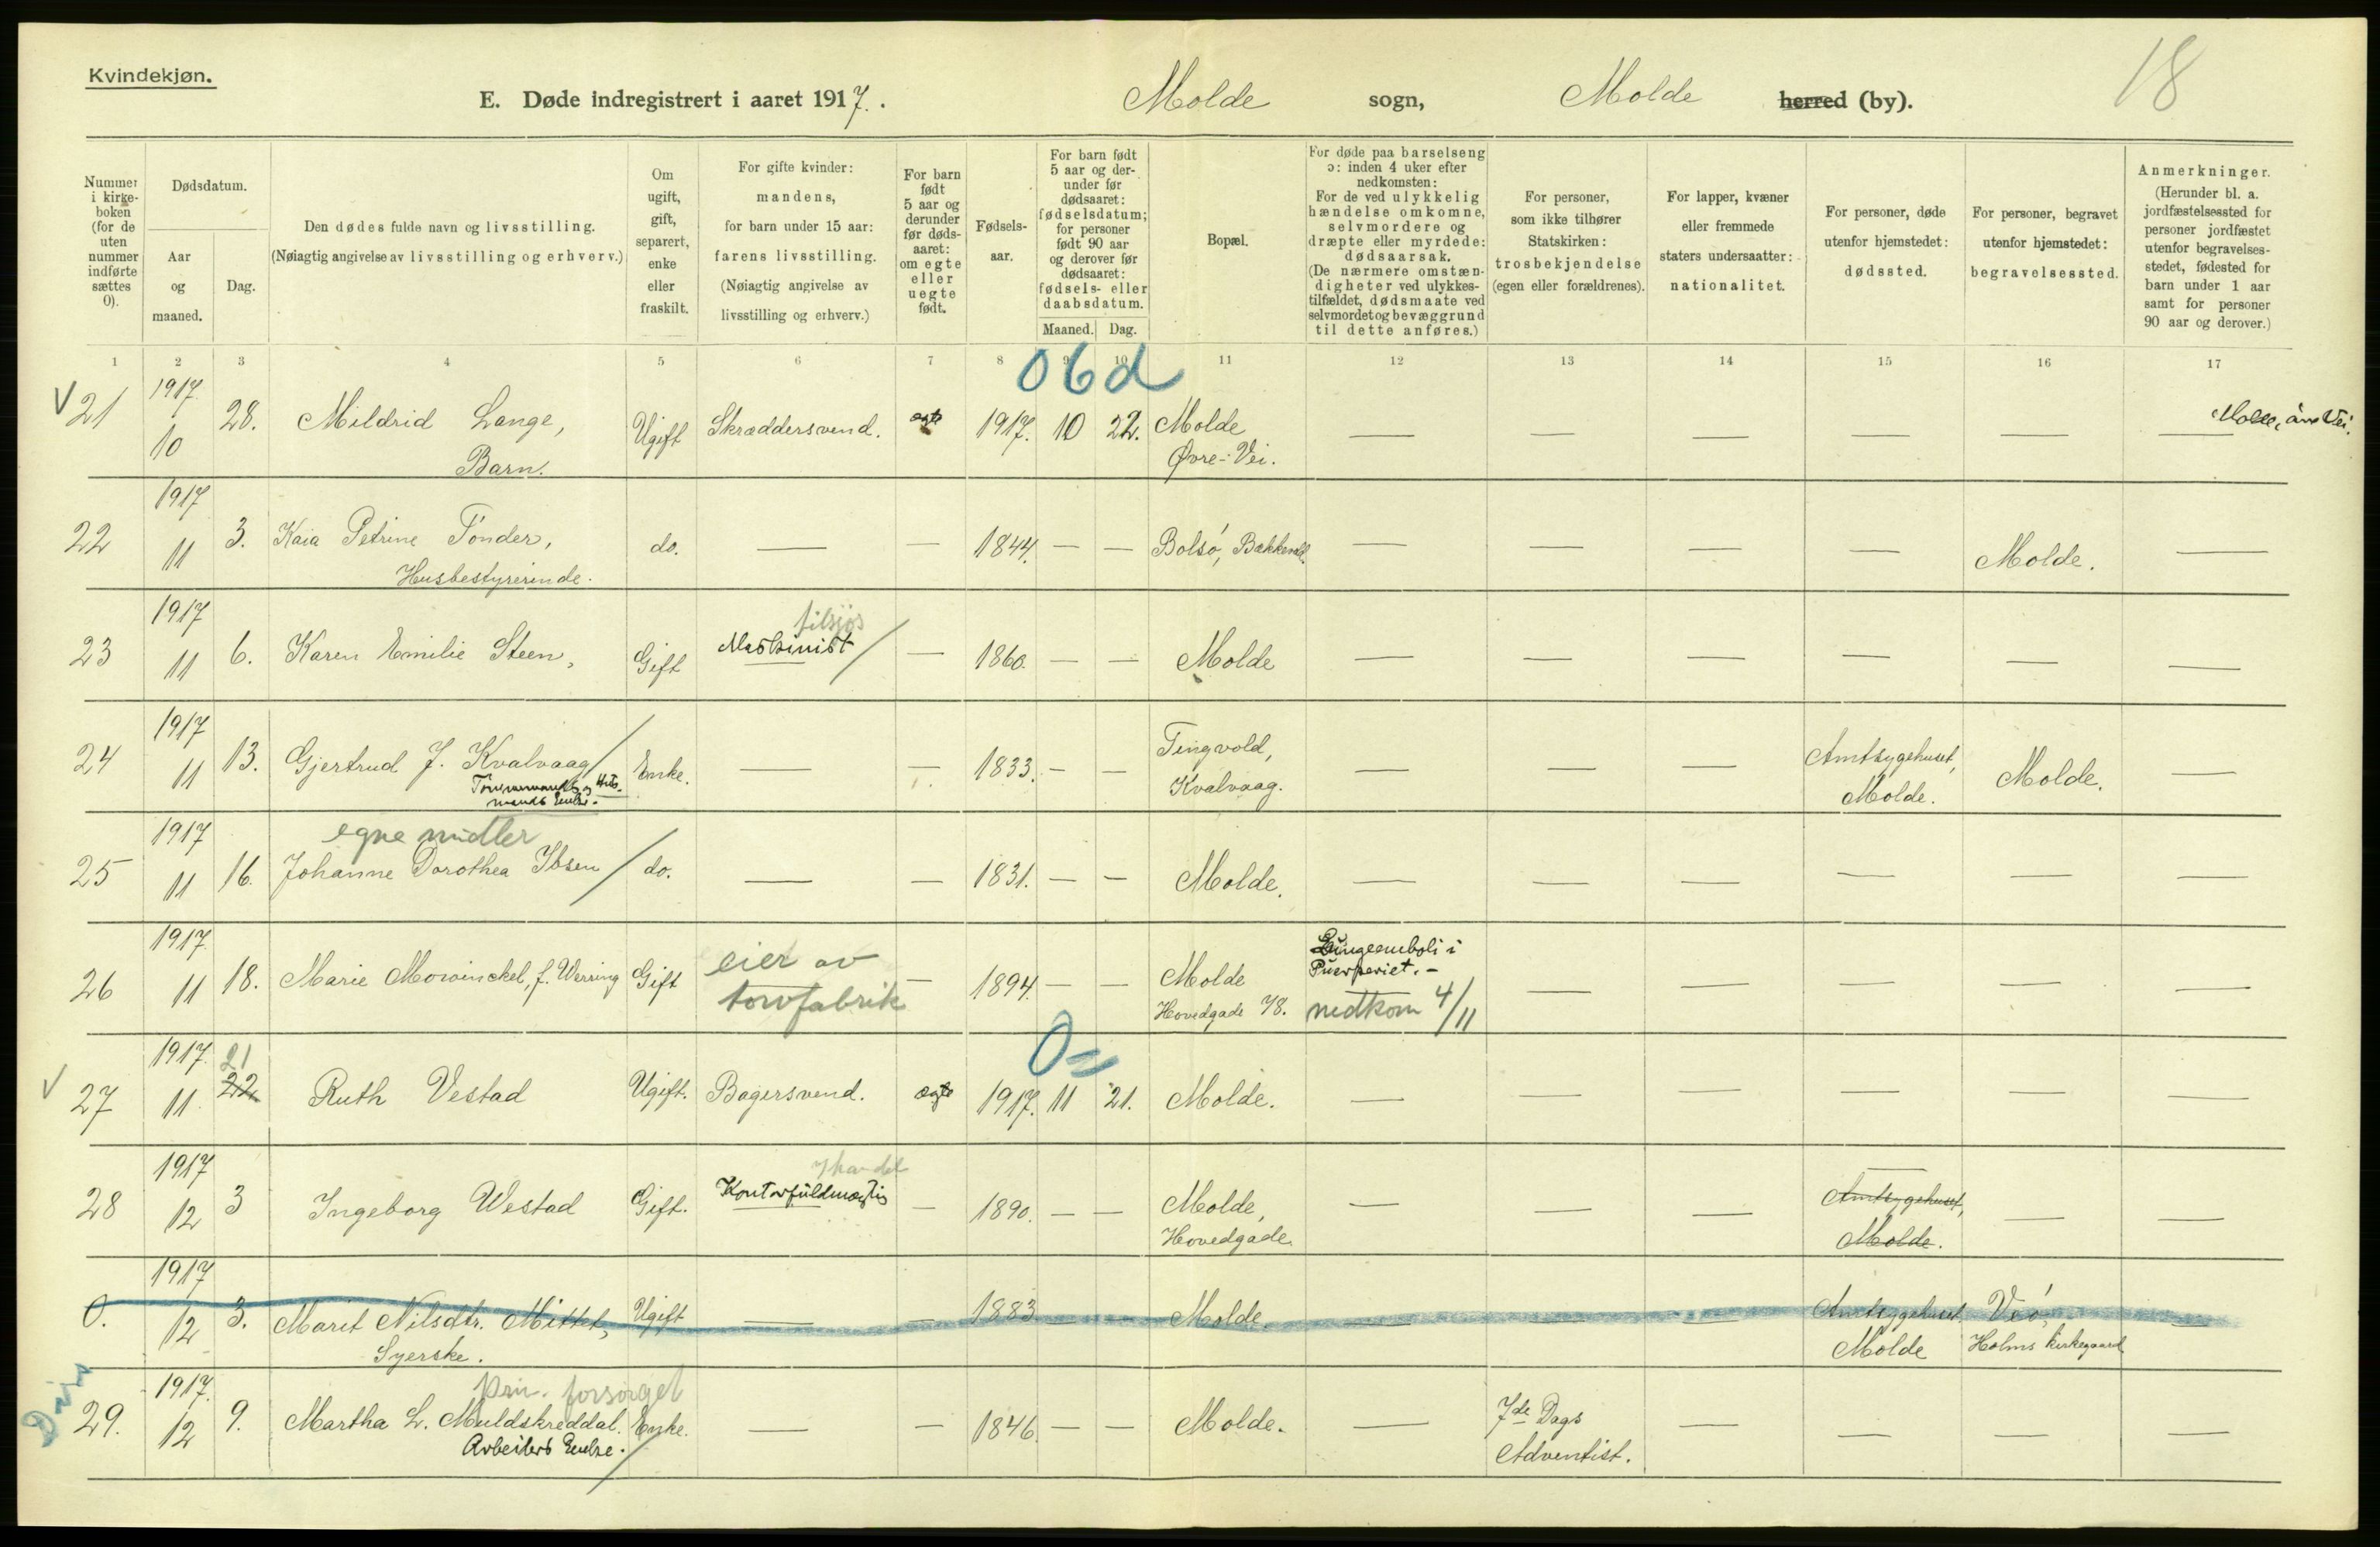 Kvindekjøn.
18
E. Døde indregistrert i aaret 1917. Molde sogn, Molde herred (by).
Nummer i kirkeboken (for de uten nummer indførte sættes 0).
Dødsdatum.
Aar og maaned.
Dag.
Den dødes fulde navn og livsstilling.
(Nøiagtig angivelse av livsstilling og erhverv.)
Om ugift, gift, separert, enke eller fraskilt.
For gifte kvinder: mandens, for barn under 15 aar: farens livsstilling.
(Nøiagtig angivelse av livsstilling og erhverv.)
For barn født 5 aar og derunder før dødsaaret: om egte eller uegte født.
Fødselsaar.
For barn født 5 aar og derunder før dødsaaret: fødselsdatum; for personer født 90 aar og derover før dødsaaret: fødsels- eller daabsdatum.
Maaned. Dag.
Bopæl.
For døde paa barselseng ɔ: inden 4 uker efter nedkomsten: For de ved ulykkelig hændelse omkomne, selvmordere og dræpte eller myrdede: dødsaarsak.
(De nærmere omstændigheter ved ulykkestilfældet, dødsmaate ved selvmordet og bevæggrund til dette anføres.)
For personer, som ikke tilhører Statskirken: trosbekjendelse (egen eller forældrenes).
For lapper, kvæner eller fremmede staters undersaatter: nationalitet.
For personer, døde utenfor hjemstedet: dødssted.
For personer, begravet utenfor hjemstedet: begravelsessted.
Anmerkninger.
(Herunder bl. a. jordfæstelsessted for personer jordfæstet utenfor begravelsesstedet, fødested for barn under 1 aar samt for personer 90 aar og derover.)
1 2 3 4 5 6 7 8 9 10 11 12 13 14 15 16 17
06d
V 21 1917. 10 28. Mildrid Lange, Ugift Skræddersvend. egte 1917. 10 22. Molde — — — — — Molde, Vei.
Barn. Øvre-Vei.
22 1917 11 3. Kaia Petrine Tönder, do. — — 1844. — — Bolsö, — — — — Molde. —
Husbestyrerinde.
tilsjøs
23 1917 11 6. Karen Emilie Steen, Gift Maskinist — 1860. — — Molde — — — — — —
24 1917 11 13. Gjertrud J. Kvalvaag Enke. — — 1833. — — Tingvold, — — — Amtsygehuset, Molde. —
Kvalvaag. Molde.
mands Enke.
egne midler
25 1917 11 16. Johanne Dorothea Ibsen do. — — 1831. — — Molde. — — — — — —
26 1917. 11 18. Marie Mowinckel, f. Werring Gift eier av — 1894. — — Molde Lungeemboli i — — — — —
torvfabrik Hovedgade 78. Puerperiet. —
nedkom 4/11
0
V 27 1917. 11 21 22. Ruth Vestad Ugift. Bagersvend. egte 1917. 11 21. Molde. — — — — — —
handel
28 1917 12 3 Ingeborg Westad Gift. Kontorfuldmægtig — 1890. — — Molde, — — — Amtsygehuset, — —
Hovedgade. Molde.
0. 1917 12 3. Marit Nilsdtr. Mittet, Ugift — — 1883 — — Molde. — — — Amtsygehuset Veö, —
Syerske. Molde Holms kirkegaard
priv. forsørget
29. 1917. 12 9. Martha L. Muldskreddal. Enke. — — 1846. — — Molde. — 7de Dags — — — —
Arbeiders Enke. Adventist.